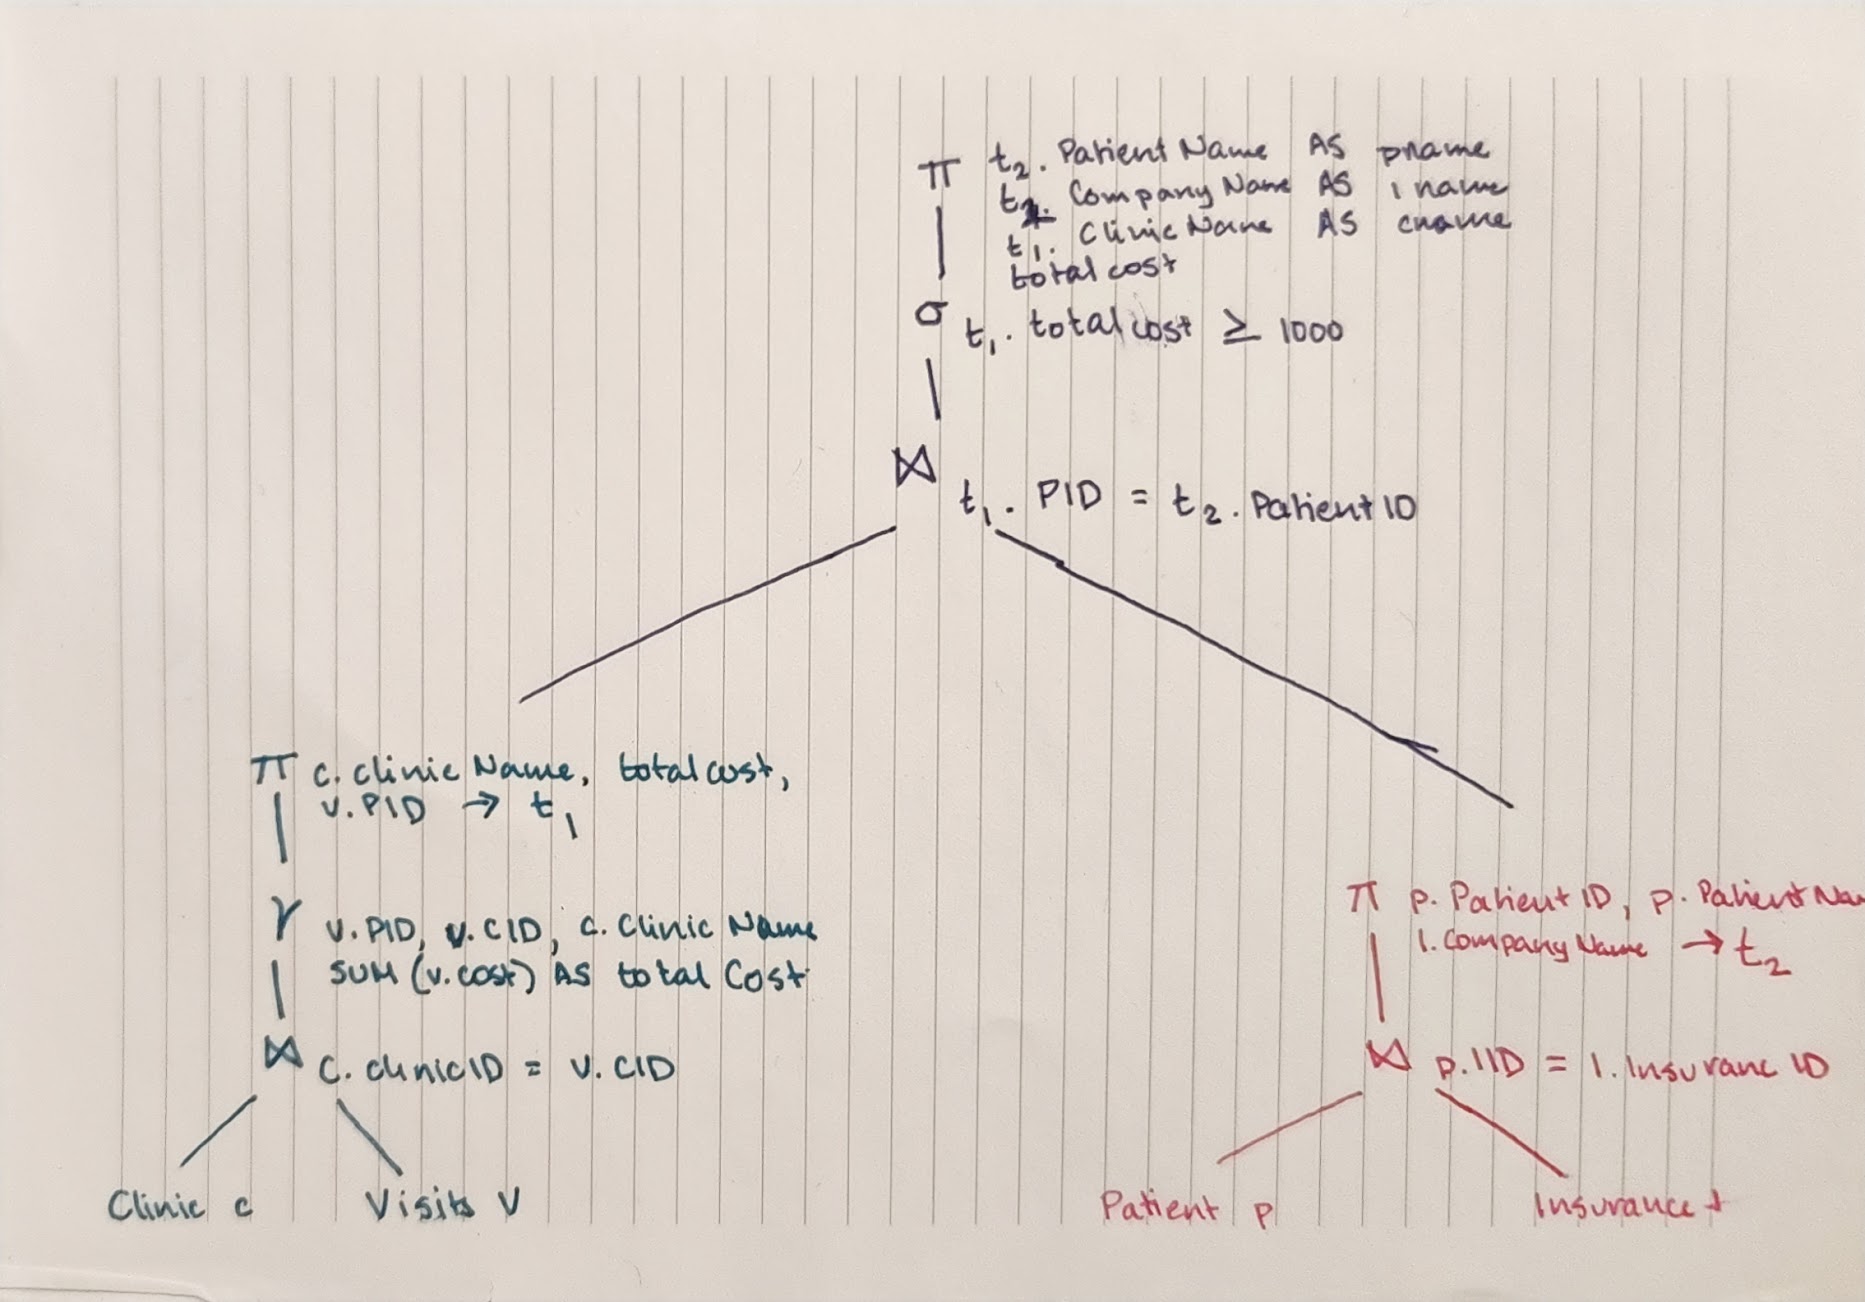 π t₂. Patient Name AS pname
t₂. Company Name AS iname
t₁. Clinic Name AS cname
total cost
σ t₁. total cost ≥ 1000
⋈ t₁. PID = t₂. Patient ID
π c. clinic Name, total cost,
v. PID → t₁
γ v. PID, v. CID, c. Clinic Name
SUM (v. cost) AS total Cost
⋈ C. clinic ID = v. CID
Clinic c
Visits V
π p. Patient ID, p. Patient Nam
I. Company Name → t₂
⋈ p. IID = I. Insuranc ID
Patient p
Insurance I